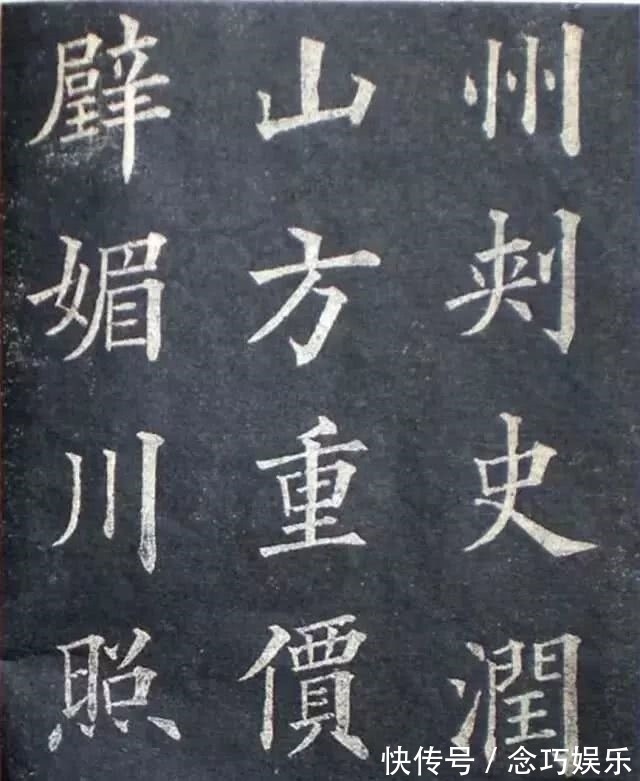 州刺史潤
山方重價
璧媚川照
快传号 / 念巧娱乐